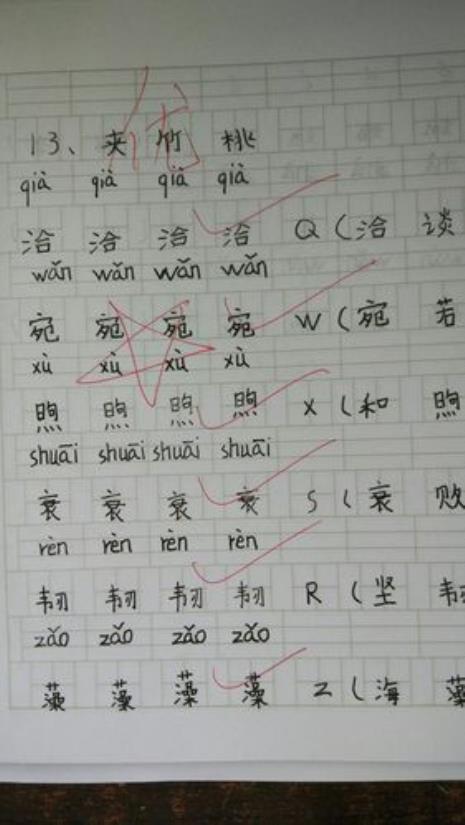 13、夹竹桃
qià qià qià qià
洽 洽 洽 洽 Q (洽 谈
wǎn wǎn wǎn wǎn
宛 宛 宛 宛 W (宛 若
xù xù xù xù
煦 煦 煦 煦 X (和 煦
shuāi shuāi shuāi shuāi
衰 衰 衰 衰 S (衰 败
rèn rèn rèn rèn
韧 韧 韧 韧 R (坚 韧
zǎo zǎo zǎo zǎo
藻 藻 藻 藻 Z (海 藻